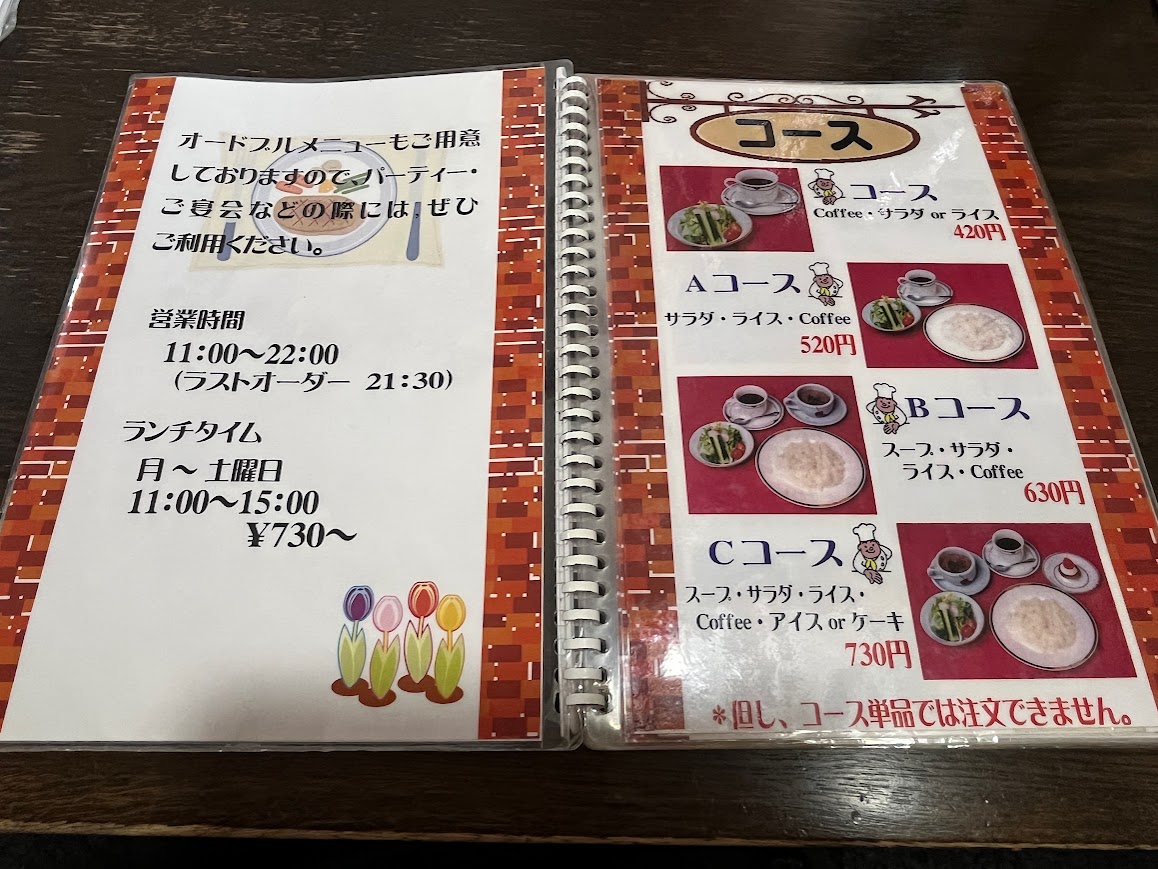 オードブルメニューもご用意
しておりますので、パーティー・
ご宴会などの際には、ぜひ
ご利用ください。
営業時間
11:00～22:00
(ラストオーダー 21:30)
ランチタイム
月～土曜日
11:00～15:00
￥730～
コース
コース
Coffee・サラダ or ライス
420円
Aコース
サラダ・ライス・Coffee
520円
Bコース
スープ・サラダ・
ライス・Coffee
630円
Cコース
スープ・サラダ・ライス・
Coffee・アイス or ケーキ
730円
＊但し、コース単品では注文できません。